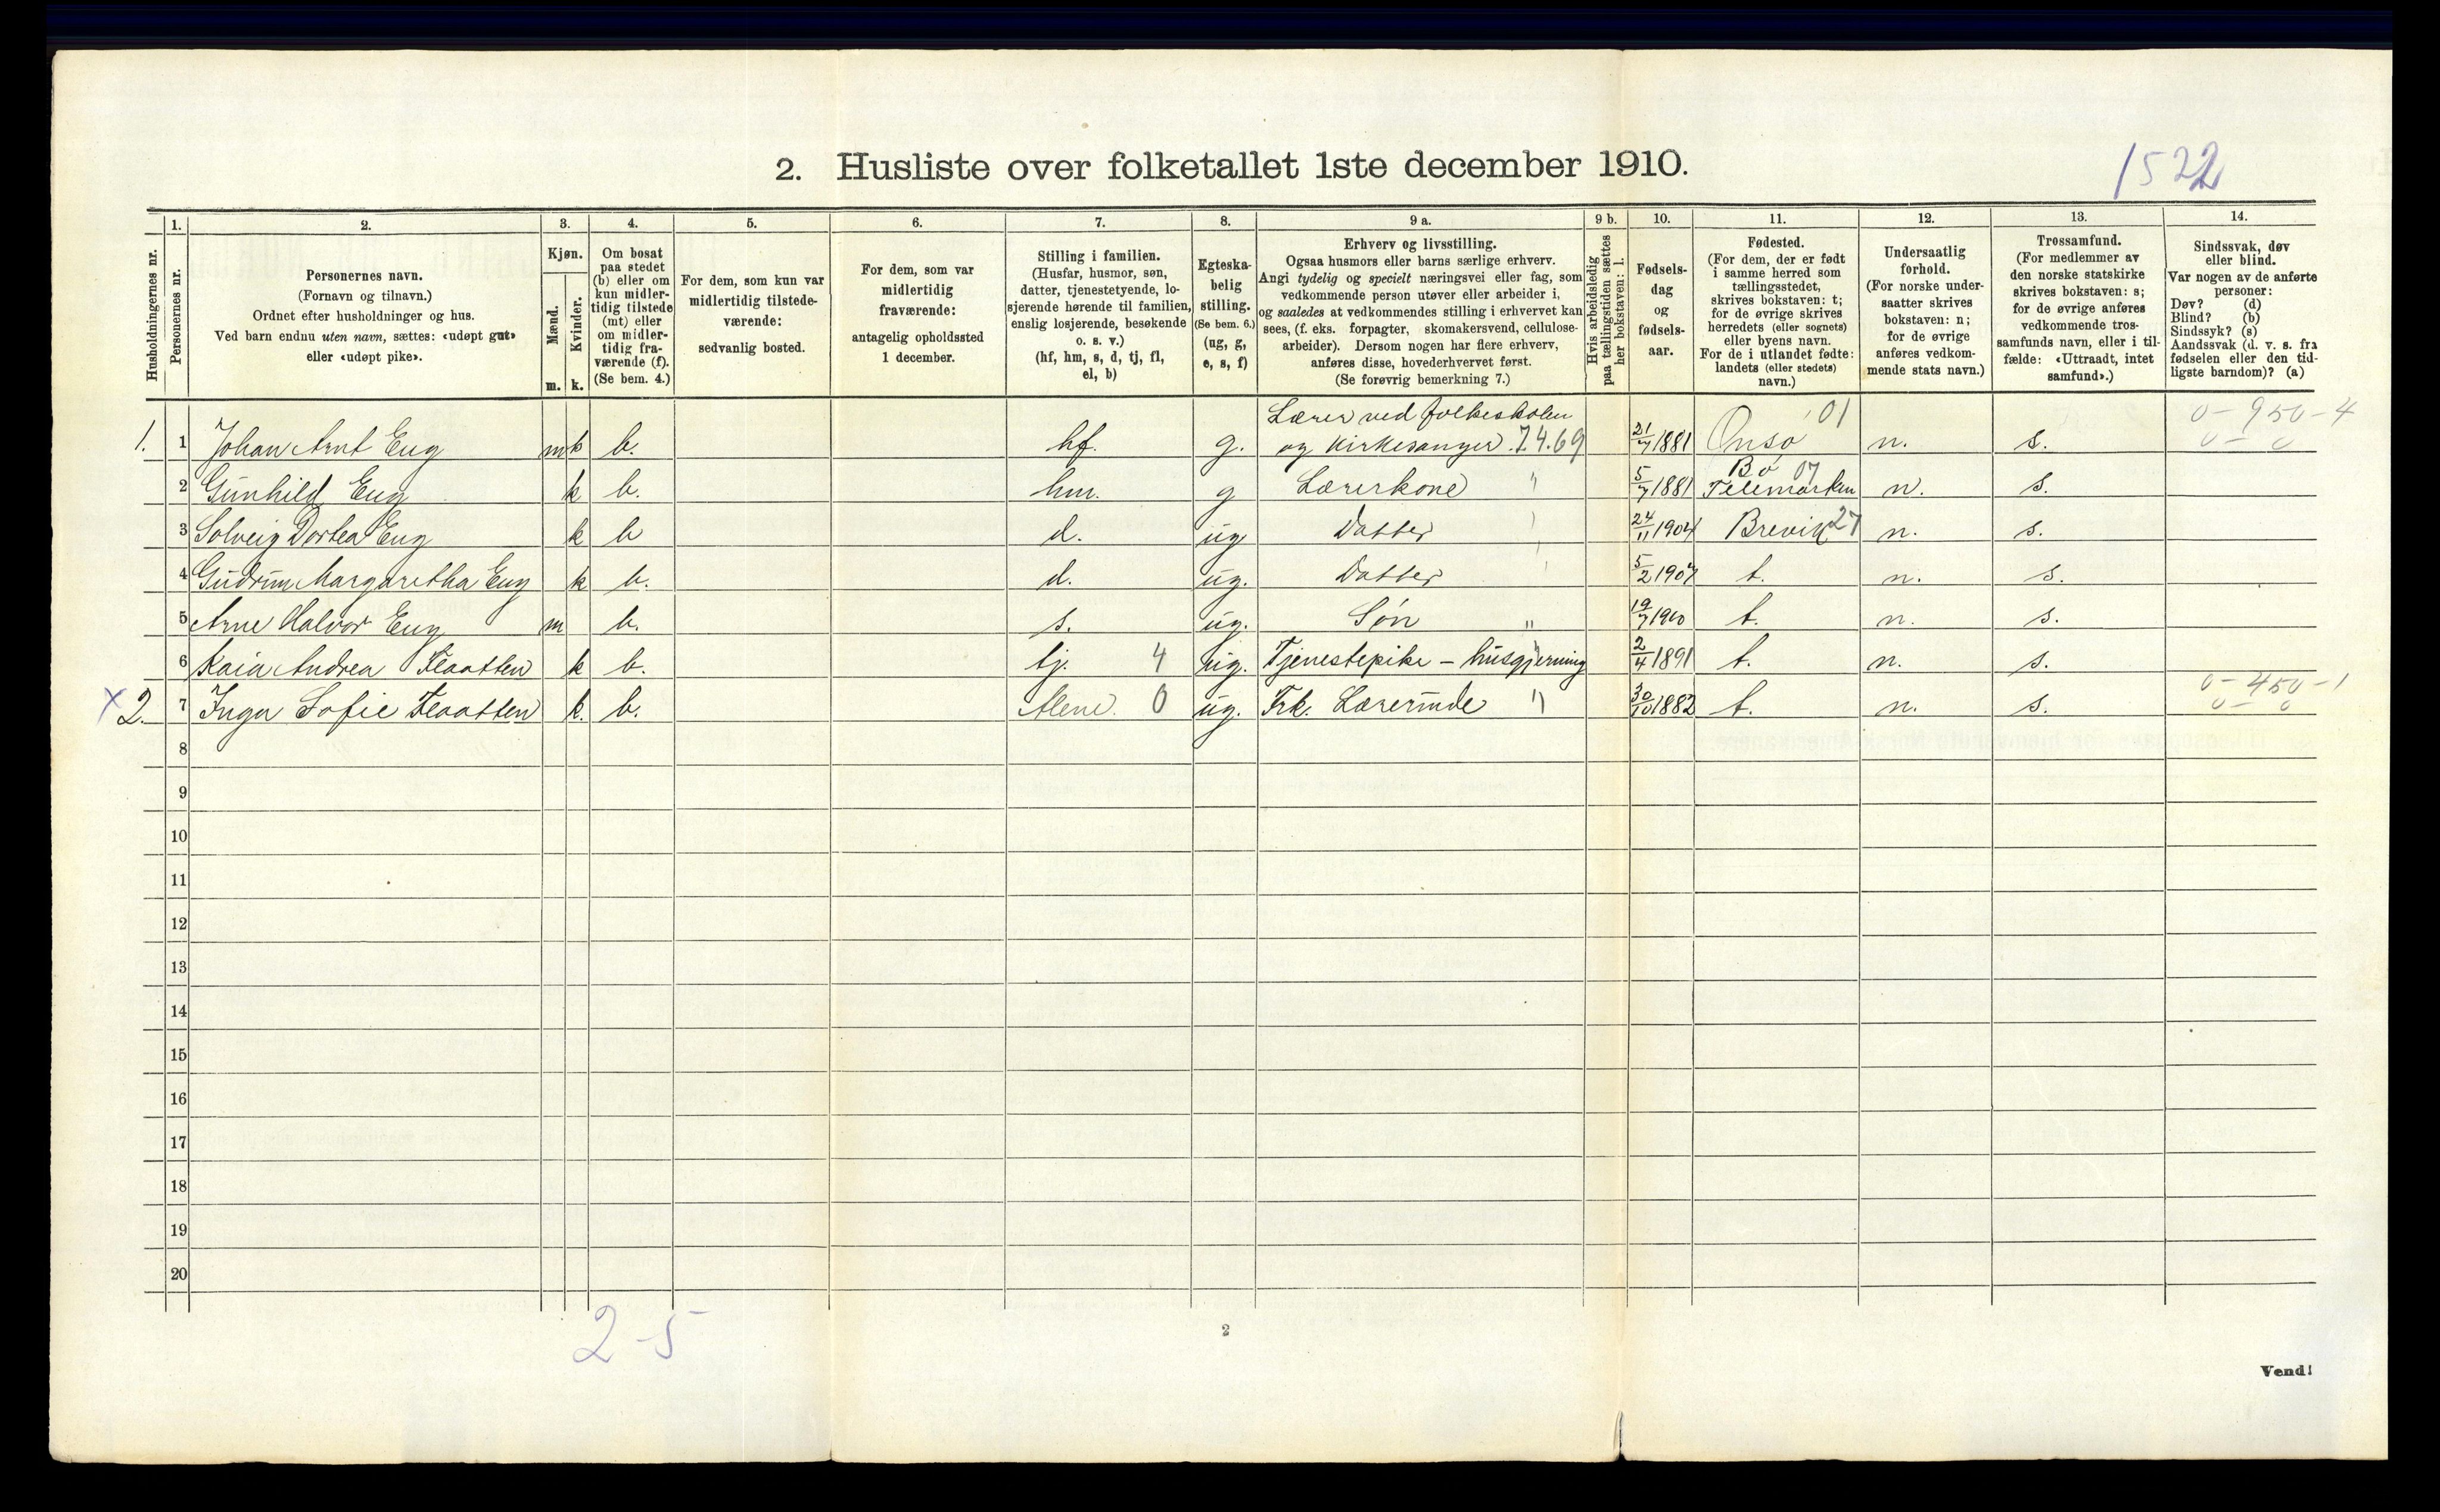 2. Husliste over folketallet 1ste december 1910.
1522
Husholdningernes nr.
1.
Personernes nr.
2.
Personernes navn.
(Fornavn og tilnavn.)
Ordnet efter husholdninger og hus.
Ved barn endnu uten navn, sættes: «udøpt gut»
eller «udøpt pike».
3.
Kjøn.
Mænd.
Kvinder.
m. k.
4.
Om bosat
paa stedet
(b) eller om
kun midler-
tidig tilstede
(mt) eller
om midler-
tidig fra-
værende (f).
(Se bem. 4.)
5.
For dem, som kun var
midlertidig tilstede-
værende:
sedvanlig bosted.
6.
For dem, som var
midlertidig
fraværende:
antagelig opholdssted
1 december.
7.
Stilling i familien.
(Husfar, husmor, søn,
datter, tjenestetyende, lo-
sjerende hørende til familien,
enslig losjerende, besøkende
o. s. v.)
(hf, hm, s, d, tj, fl,
el, b)
8.
Egteska-
belig
stilling.
(Se bem. 6.)
(ug, g,
e, s, f)
9 a.
Erhverv og livsstilling.
Ogsaa husmors eller barns særlige erhverv.
Angi tydelig og specielt næringsvei eller fag, som
vedkommende person utøver eller arbeider i,
og saaledes at vedkommendes stilling i erhvervet kan
sees, (f. eks. forpagter, skomakersvend, cellulose-
arbeider). Dersom nogen har flere erhverv,
anføres disse, hovederhvervet først.
(Se forøvrig bemerkning 7.)
9 b.
Hvis arbeidsledig
paa tællingstiden sættes
her bokstaven: l.
10.
Fødsels-
dag
og
fødsels-
aar.
11.
Fødested.
(For dem, der er født
i samme herred som
tællingsstedet,
skrives bokstaven: t;
for de øvrige skrives
herredets (eller sognets)
eller byens navn.
For de i utlandet fødte:
landets (eller stedets)
navn.)
12.
Undersaatlig
forhold.
(For norske under-
saatter skrives
bokstaven: n;
for de øvrige
anføres vedkom-
mende stats navn.)
13.
Trossamfund.
(For medlemmer av
den norske statskirke
skrives bokstaven: s;
for de øvrige anføres
vedkommende tros-
samfunds navn, eller i til-
fælde: «Uttraadt, intet
samfund».)
14.
Sindssvak, døv
eller blind.
Var nogen av de anførte
personer:
Døv? (d)
Blind? (b)
Sindssyk? (s)
Aandssvak (d. v. s. fra
fødselen eller den tid-
ligste barndom)? (a)
Lærer ved folkeskolen 01 0-950-4
1. 1 Johan Arnt Eug m b. hf. g. og kirkesanger. 74.69 21/7 1881 Onsø n. s. 0-0
Bø 07
2 Gunhild Eug k b. hm. g Lærerkone " 5/7 1881 Telemarken n. s.
3 Solveig Dortea Eug k b d. ug Datter 24/11 1904 Brevik 27 n. s.
4 Gudrun Margaretha Eug k b. d. ug. Datter 5/2 1907 t. n. s.
5 Arne Halvor Eug m b. s. ug. Søn " 19/7 1910 t. n. s.
6 Kaia Andrea Flaatten k b. tj. 4 ug. Tjenestepike - husgjerning 2/4 1891 t. n. s.
0-450-1
x 2. 7 Inga Sofie Flaatten k. b. Alene. 0 ug. Frk. Lærerinde " 30/10 1882 t. n. s. 0-0
8
9
10
11
12
13
14
15
16
17
18
19
20
2-5
2
Vend!